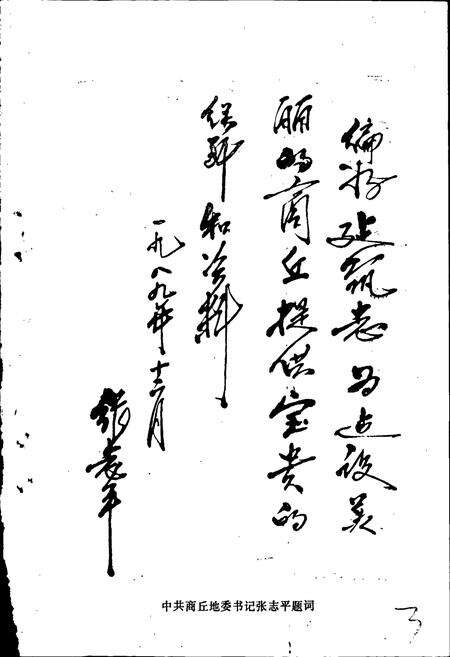 编好建筑志为建设美
丽的商丘提供宝贵的
经验和资料
一九八九年十二月
张志平
中共商丘地委书记张志平题词
3